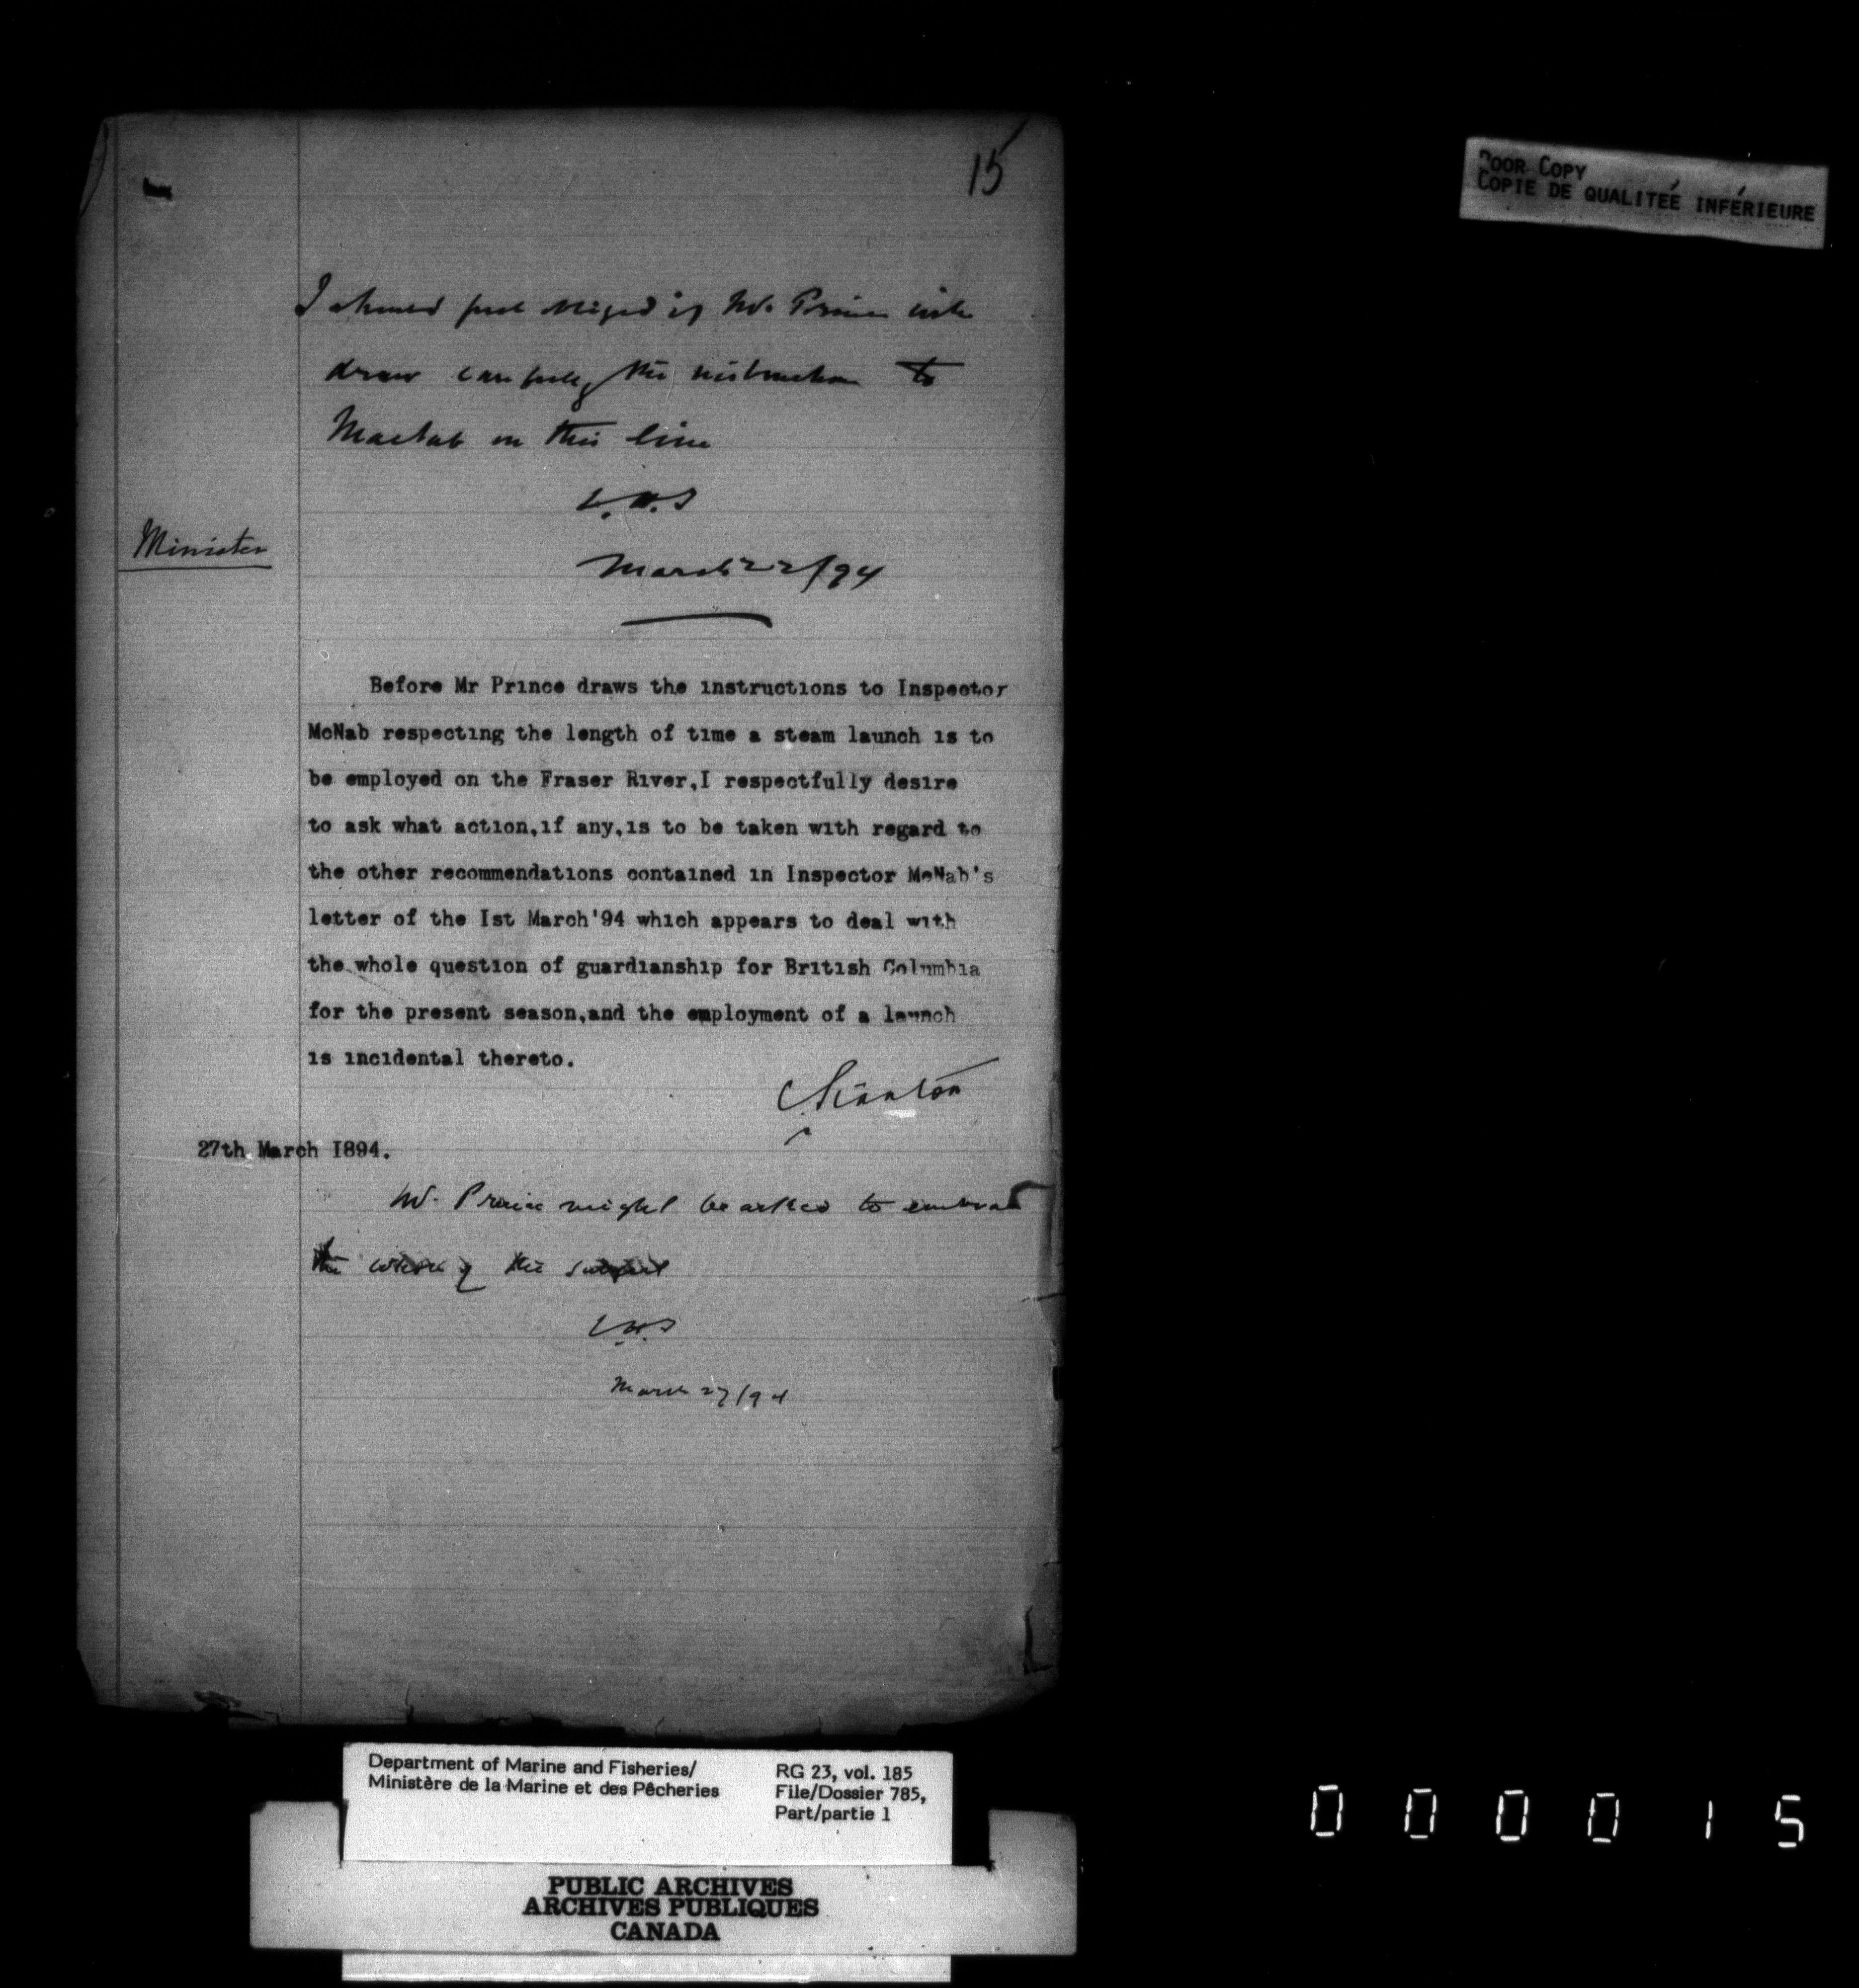 15
POOR COPY
COPIE DE QUALITEÉ INFÉRIEURE
I should feel obliged if Mr. Prince will
draw carefully the instruction to
MacNab on this line
March 22/94
Minister
Before Mr Prince draws the instructions to Inspector
McNab respecting the length of time a steam launch is to
be employed on the Fraser River,I respectfully desire
to ask what action,if any,is to be taken with regard to
the other recommendations contained in Inspector McNab's
letter of the Ist March'94 which appears to deal with
the whole question of guardianship for British Columbia
for the present season,and the employment of a launch
is incidental thereto.
27th March I894.
Mr. Prince might be asked to embrace
the whole of the subject
March 27/94
Department of Marine and Fisheries/
Ministère de la Marine et des Pêcheries
RG 23, vol. 185
File/Dossier 785,
Part/partie 1
PUBLIC ARCHIVES
ARCHIVES PUBLIQUES
CANADA
0 0 0 0 1 5